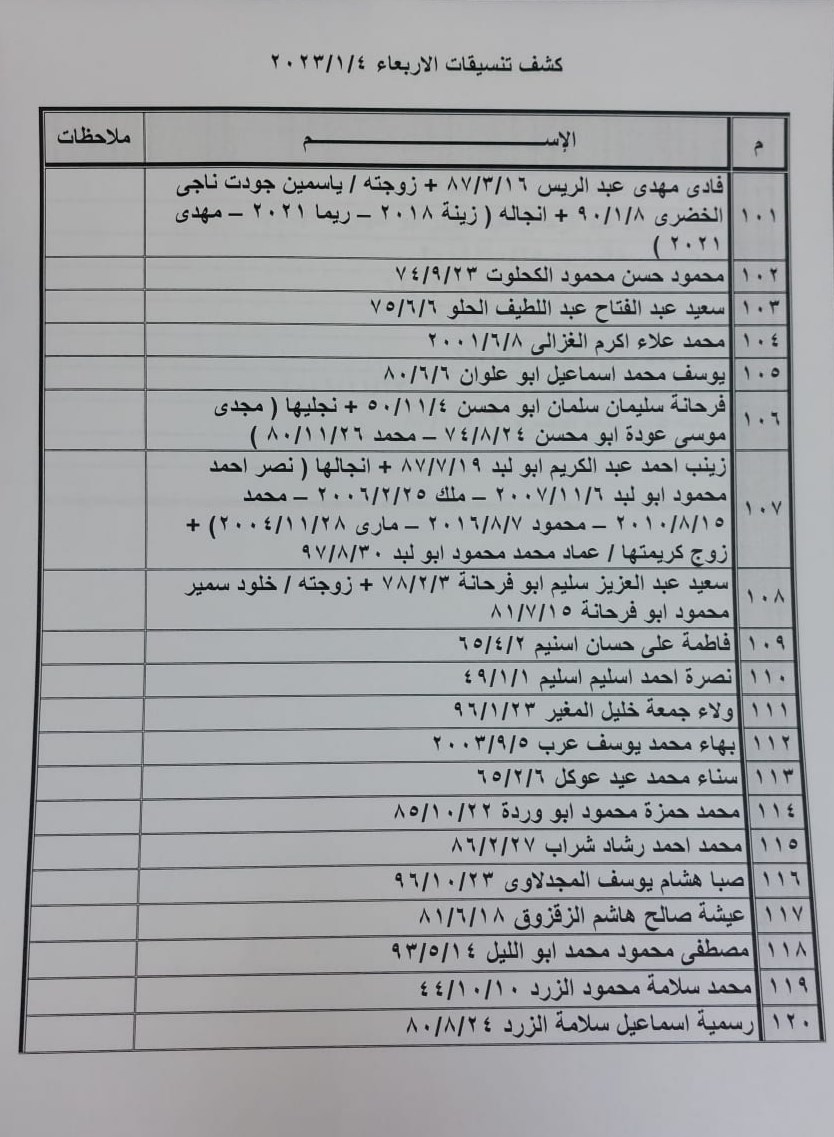 كشف تنسيقات الاربعاء ٢٠٢٣/١/٤
م الإســـــــــــم ملاحظات
١٠١ فادى مهدى عبد الريس ٨٧/٣/١٦ + زوجته / ياسمين جودت ناجى
الخضرى ٩٠/١/٨ + انجاله ( زينة ٢٠١٨ – ريما ٢٠٢١ – مهدى
٢٠٢١ )
١٠٢ محمود حسن محمود الكحلوت ٧٤/٩/٢٣
١٠٣ سعيد عبد الفتاح عبد اللطيف الحلو ٧٥/٦/٦
١٠٤ محمد علاء اكرم الغزالى ٢٠٠١/٦/٨
١٠٥ يوسف محمد اسماعيل ابو علوان ٨٠/٦/٦
١٠٦ فرحانة سليمان سلمان ابو محسن ٥٠/١١/٤ + نجليها ( مجدى
موسى عودة ابو محسن ٧٤/٨/٢٤ – محمد ٨٠/١١/٢٦ )
١٠٧ زينب احمد عبد الكريم ابو لبد ٨٧/٧/١٩ + انجالها ( نصر احمد
محمود ابو لبد ٢٠٠٧/١١/٦ – ملك ٢٠٠٦/٢/٢٥ – محمد
٢٠١٠/٨/١٥ – محمود ٢٠١٦/٨/٧ – مارى ٢٠٠٤/١١/٢٨) +
زوج كريمتها / عماد محمد محمود ابو لبد ٩٧/٨/٣٠
١٠٨ سعيد عبد العزيز سليم ابو فرحانة ٧٨/٢/٣ + زوجته / خلود سمير
محمود ابو فرحانة ٨١/٧/١٥
١٠٩ فاطمة على حسان اسنيم ٦٥/٤/٢
١١٠ نصرة احمد اسليم اسليم ٤٩/١/١
١١١ ولاء جمعة خليل المغير ٩٦/١/٢٣
١١٢ بهاء محمد يوسف عرب ٢٠٠٣/٩/٥
١١٣ سناء محمد عيد عوكل ٦٥/٢/٦
١١٤ محمد حمزة محمود ابو وردة ٨٥/١٠/٢٢
١١٥ محمد احمد رشاد شراب ٨٦/٢/٢٧
١١٦ صبا هشام يوسف المجدلاوى ٩٦/١٠/٢٣
١١٧ عيشة صالح هاشم الزقزوق ٨١/٦/١٨
١١٨ مصطفى محمود محمد ابو الليل ٩٣/٥/١٤
١١٩ محمد سلامة محمود الزرد ٤٤/١٠/١٠
١٢٠ رسمية اسماعيل سلامة الزرد ٨٠/٨/٢٤